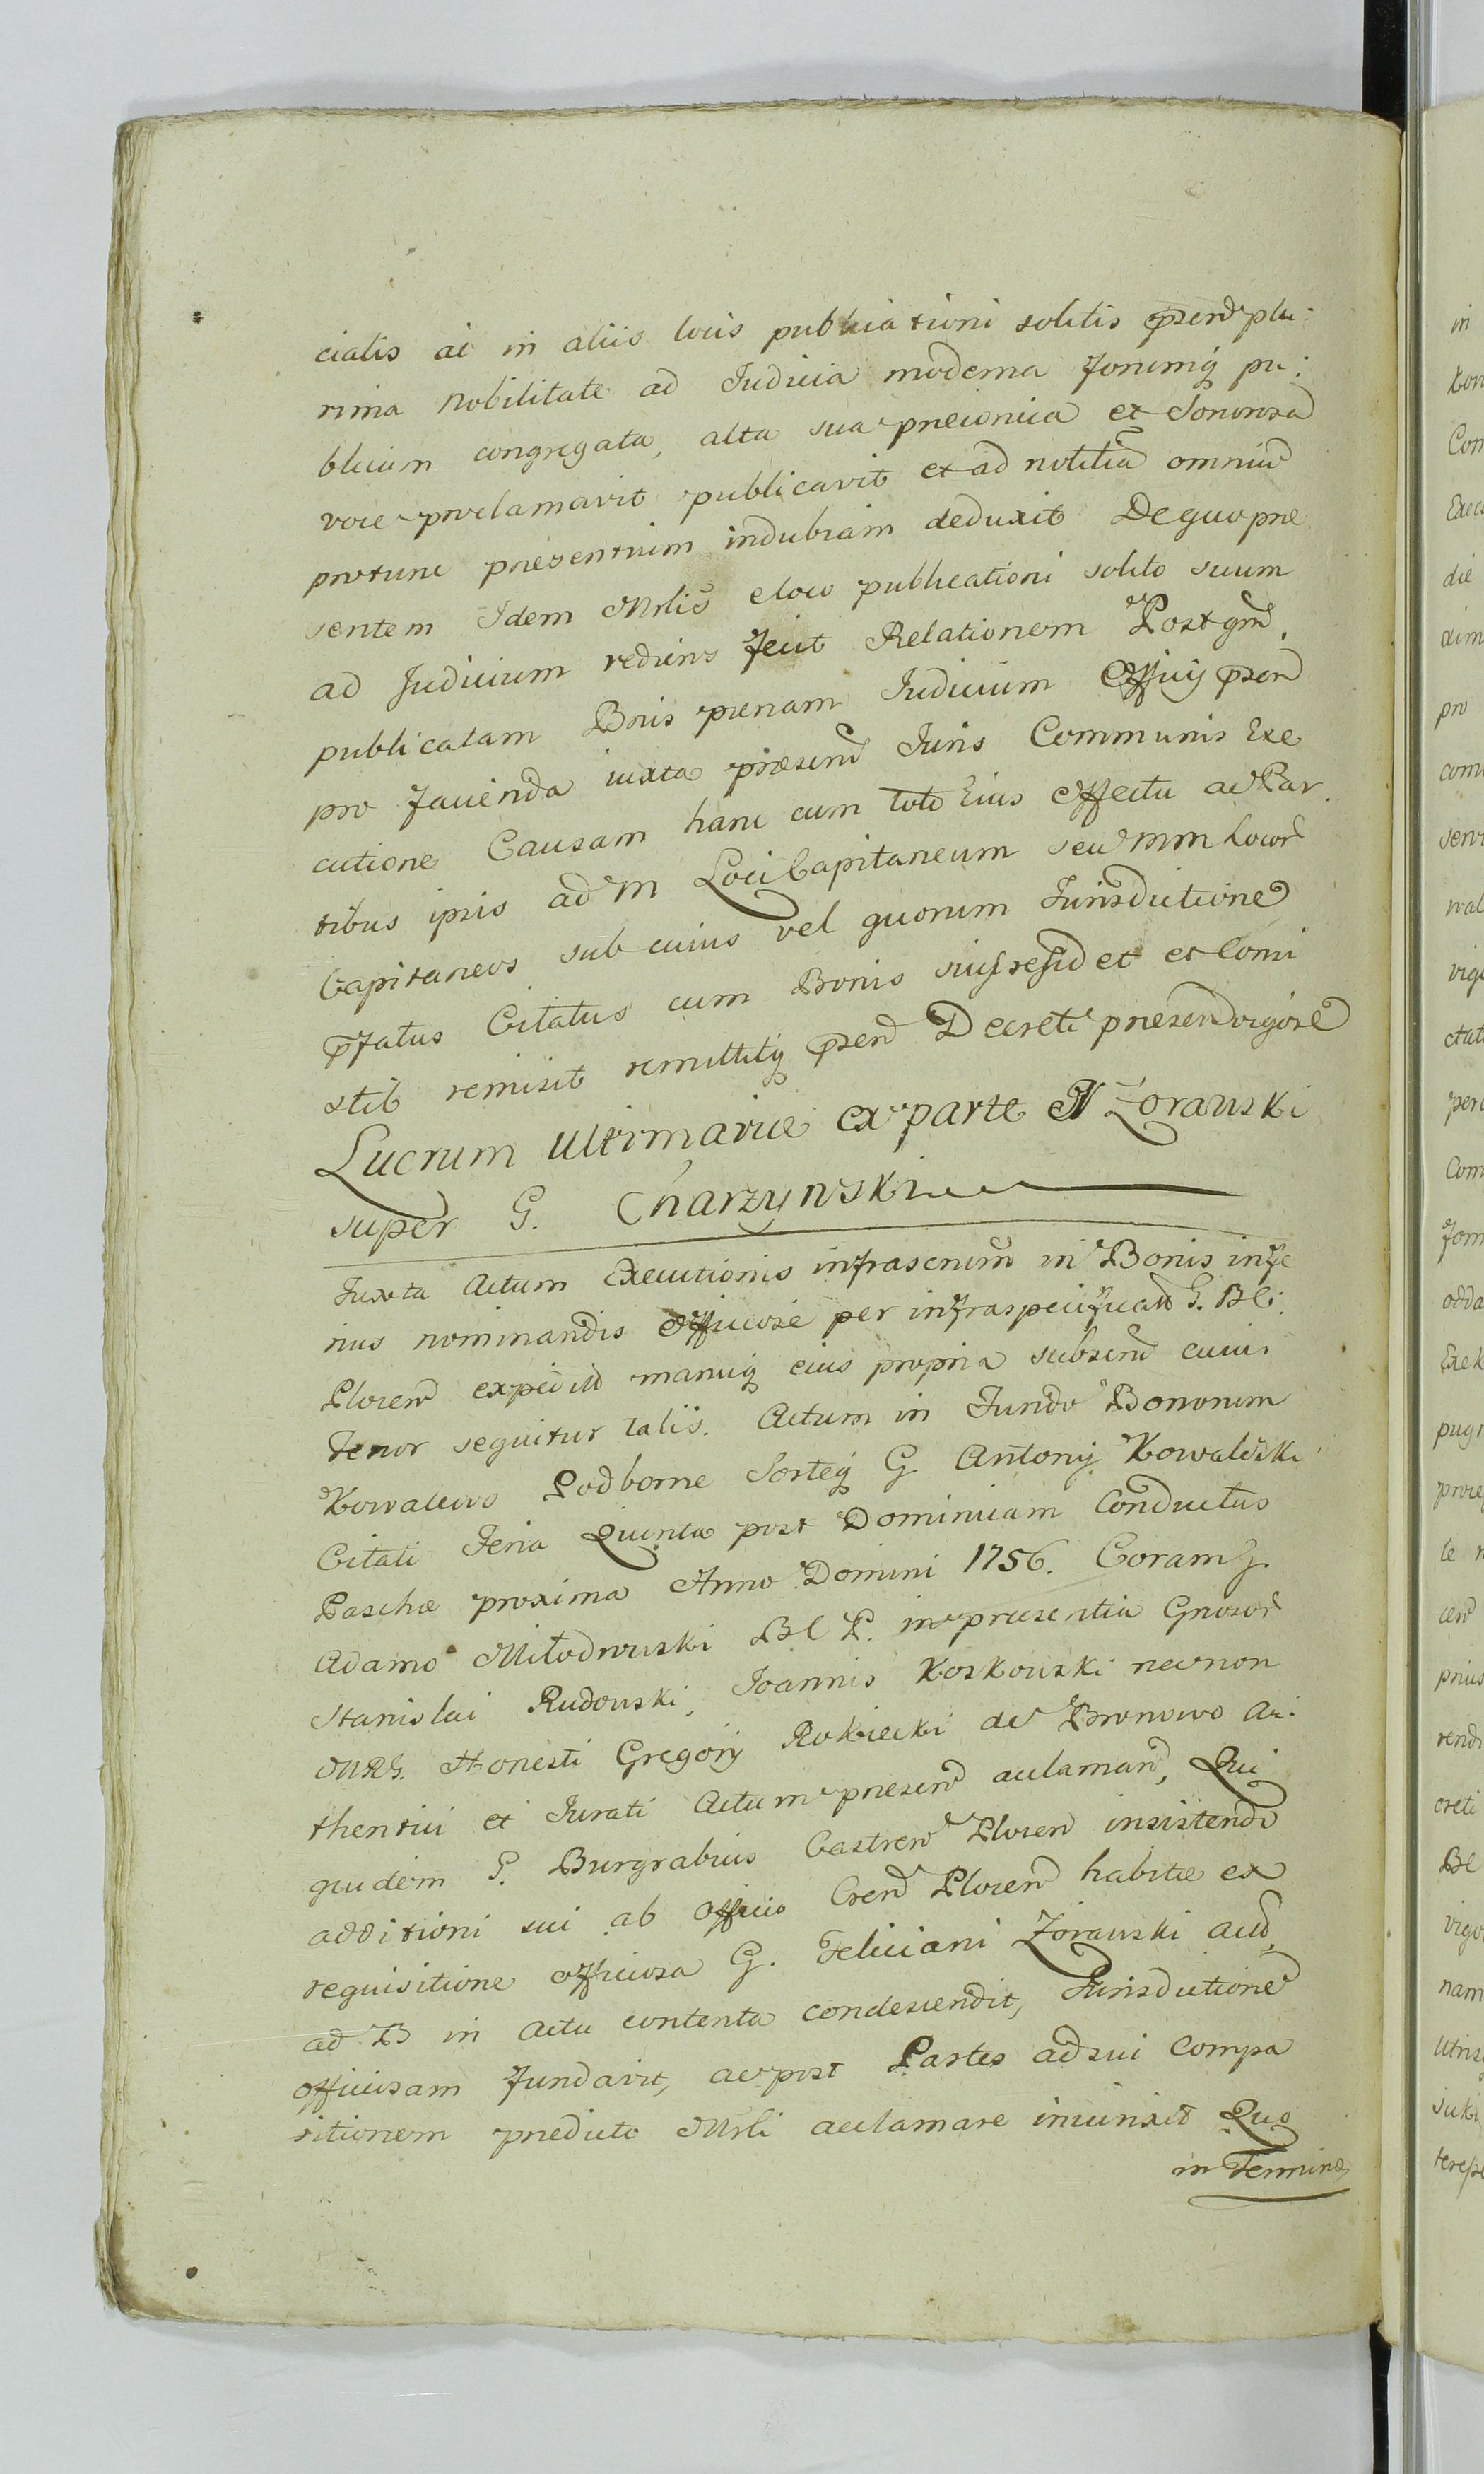 cialis ac in aliis locis publicationi solitis psend plu:
rima Nobilitate ad Iudicia moderna forumq pu:
blicum congregata, alta sua preconica et Sonorosa
voce proclamavit publicavit et ad notitia omniu
protunc presentium indubiam deduxit De quo pre
sentem Idem Mrlis e loco publicationi solito suum
ad Judicium rediens fecit Relationem Post qm
publicatam Bnis penam Iudicium Officy psen
pro facienda iuxta presens Iuris Communis Exe
cutione Causam hanc cum toto Eius effectu ac Par
tibus ipsis ad M Loci Capitaneum seu MM Locor
Capitaneos sub cuius vel quorum Iurisdictione
pfatus Citatus cum Bonis suis residet et Consi
stit remisit remittitq psen Decreti presen vigore
Lucrum Ultimarie ex parte N Zorawski
super G. Charzynski
Iuxta Actum Executionis infrascrium in Bonis infe
rius nominandis officiose per infraspecificatt G. BC:
Plocen expeditt manuq eius propria subscru cuius
Tenor sequitur talis. Actum in Fundo Bonorum
Kowalewo Podborne Sorteq G Antony Kowalewski
Citati Feria Quinta post Dominicam Conductus
Paschæ proxima Anno Domini 1756. Coram G.
Adamo Miłodrowski BC P. in presentia Gnosor
Stanislai Rudowski, Ioannis Koskowski necnon
MRG. Honesti Gregory Rokicki de Bronowo Au:
thentici et Iurati Actum presen aclaman, Qui
quidem G. Burgrabius Castren Plocen insistendo
additioni sui ab officio Cren Plocen habitæ ex
requisitione officiosa G. Feliciani Zorawski act,
ad B in Actu contenta condescendit, Iurisdictione
officiosam fundavit, ac post Partes ad sui Compa
ritionem predicto Mrli acclamare iniunxit Quo
in Termino